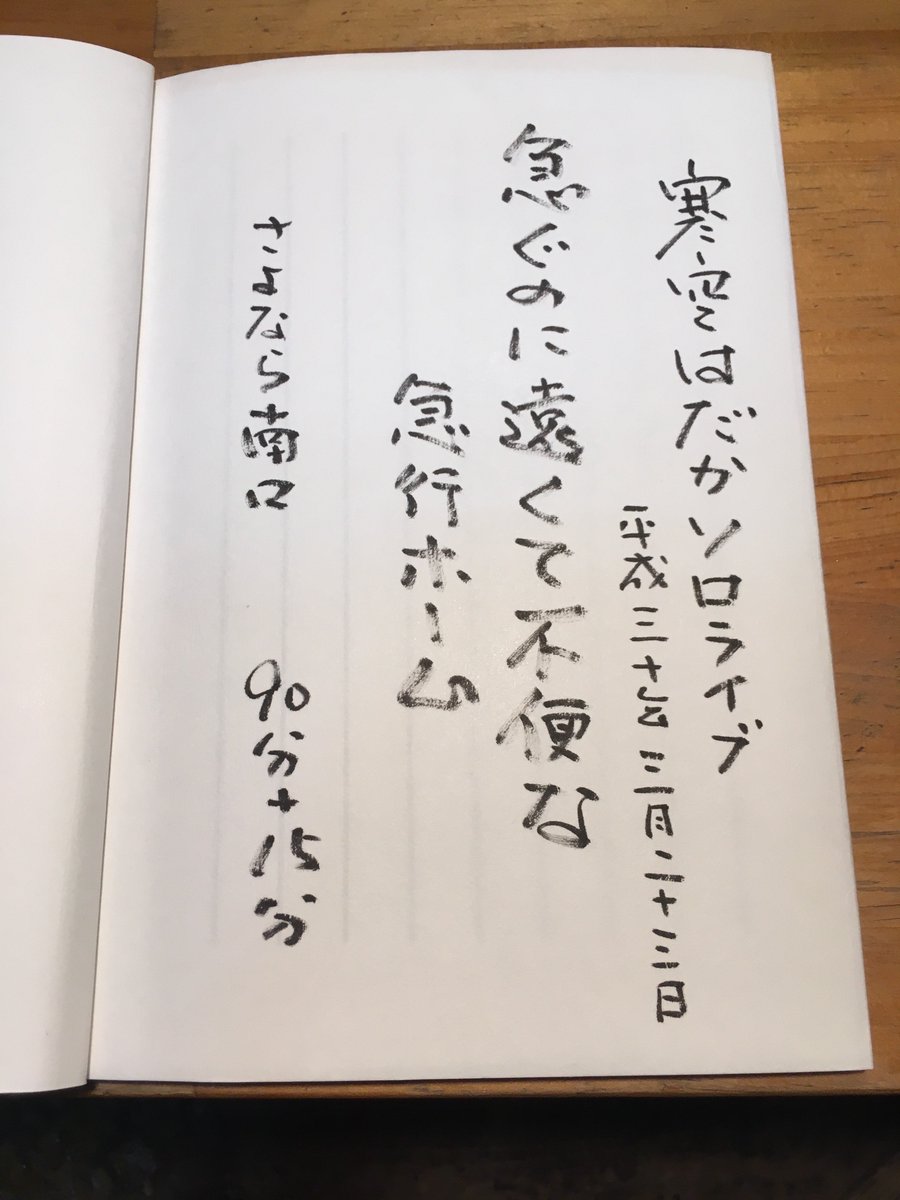 寒空はだかソロライブ
平成三十年三月二十三日
急ぐのに遠くて不便な
急行ホーム
さよなら南口 90分+15分